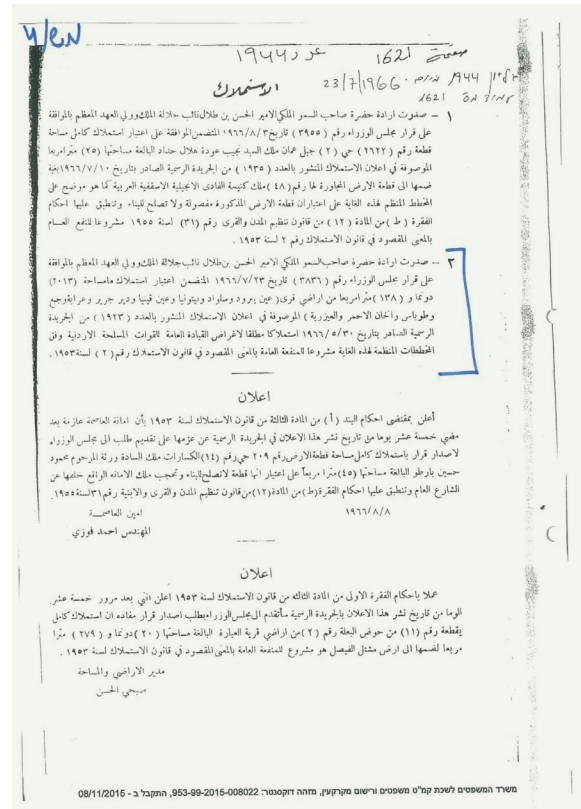 מש/4
صفحة 1621 عدد 1944
גליון 1944 מיום 23/7/1966
עמוד מס 1621
الاستملاك
١ – صدرت ارادة حضرة صاحب السمو الملكي الامير الحسن بن طلال نائب جلالة الملك وولي العهد المعظم بالموافقة
على قرار مجلس الوزراء رقم (٣٩٥٥) تاريخ ١٩٦٦/٨/٣ المتضمن الموافقة على اعتبار استملاك كامل مساحة
قطعة رقم (٢٦٢٢) حي (٢) جبل عمان ملك السيد نجيب عودة هلال حداد البالغة مساحتها (٢٥) مترا مربعا
الموصوفة في اعلان الاستملاك المنشور بالعدد (١٩٣٥) من الجريدة الرسمية الصادر بتاريخ ١٩٦٦/٧/١٠ بغية
ضمها الى قطعة الارض المجاورة لها رقم (٤٨) ملك كنيسة الفادى الانجيلية الاسقفية العربية كما هو موضح على
المخطط المنظم لهذه الغاية على اعتبار ان قطعة الارض المذكورة مفصولة ولا تصلح للبناء وتنطبق عليها احكام
الفقرة (ط) من المادة (١٢) من قانون تنظيم المدن والقرى رقم (٣١) لسنة ١٩٥٥ مشروعا للنفع العـــام
بالمعنى المقصود في قانون الاستملاك رقم ٢ لسنة ١٩٥٣ .
٢ – صدرت ارادة حضرة صاحب السمو الملكي الامير الحسن بن طلال نائب جلالة الملك وولي العهد المعظم بالموافقة
على قرار مجلس الوزراء رقم (٣٨٣٦) تاريخ ١٩٦٦/٧/٢٣ المتضمن اعتبار استملاك ما مساحة (٢٠١٣)
دونما و (١٣٨) مترا مربعا من اراضي قرى (عين يبرود وسلواد وبيتونيا وعين قينيا ودير جرير وعرابة وجبع
وطوباس والخان الاحمر والعيزرية) الموصوفة في اعلان الاستملاك المنشور بالعدد (١٩٢٣) من الجريدة
الرسمية الصادر بتاريخ ١٩٦٦/٥/٣٠ استملاكا مطلقا لاغراض القيادة العامة للقوات المسلحة الاردنية وفق
المخططات المنظمة لهذه الغاية مشروعا للمنفعة العامة بالمعنى المقصود في قانون الاستملاك رقم (٢) لسنة ١٩٥٣.
اعلان
أعلن بمقتضى احكام البند (أ) من المادة الثالثة من قانون الاستملاك لسنة ١٩٥٣ بأن امانة العاصمة عازمة بعد
مضي خمسة عشر يوما من تاريخ نشر هذا الاعلان في الجريدة الرسمية عن عزمها على تقديم طلب الى مجلس الوزراء
لاصدار قرار باستملاك كامل مساحة قطعة الارض رقم ٢٠٩ حي رقم (١٤) الكسارات ملك السادة ورثة المرحوم محمود
حسين بارطو البالغة مساحتها (٤٥) مترا مربعاً على اعتبار انها قطعة لا تصلح للبناء وتحجب ملك الامانه الواقع خلفها عن
الشارع العام وتنطبق عليها احكام الفقرة (ط) من المادة (١٢) من قانون تنظيم المدن والقرى والابنية رقم ٣١ لسنة ١٩٥٥
١٩٦٦/٨/٨ امين العاصمــة
المهندس احمد فوزي
اعلان
عملا باحكام الفقرة الاولى من المادة الثالثه من قانون الاستملاك لسنة ١٩٥٣ اعلن انني بعد مرور خمسة عشر
يوما من تاريخ نشر هذا الاعلان بالجريدة الرسمية سأتقدم الى مجلس الوزراء بطلب اصدار قرار مفاده ان استملاك كامل
قطعة رقم (١١) من حوض البعلة رقم (٢) من اراضي قرية العبارة البالغة مساحتها (٢٠) دونما و (٢٧٩) مترا
مربعا لضمها الى ارض مشتل الفيصل هو مشروع للمنفعة العامة بالمعنى المقصود في قانون الاستملاك لسنة ١٩٥٣ .
مدير الاراضي والمساحة
صبحي الحسن
משרד המשפטים לשכת קמ"ט משפטים ורישום מקרקעין, מזהה דוקסנטר: 953-99-2015-008022, התקבל ב - 08/11/2015